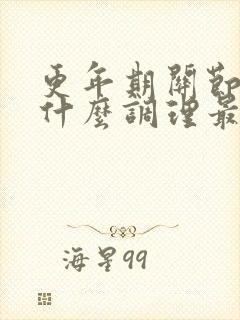 更年期關節
什麼調理最
海星99